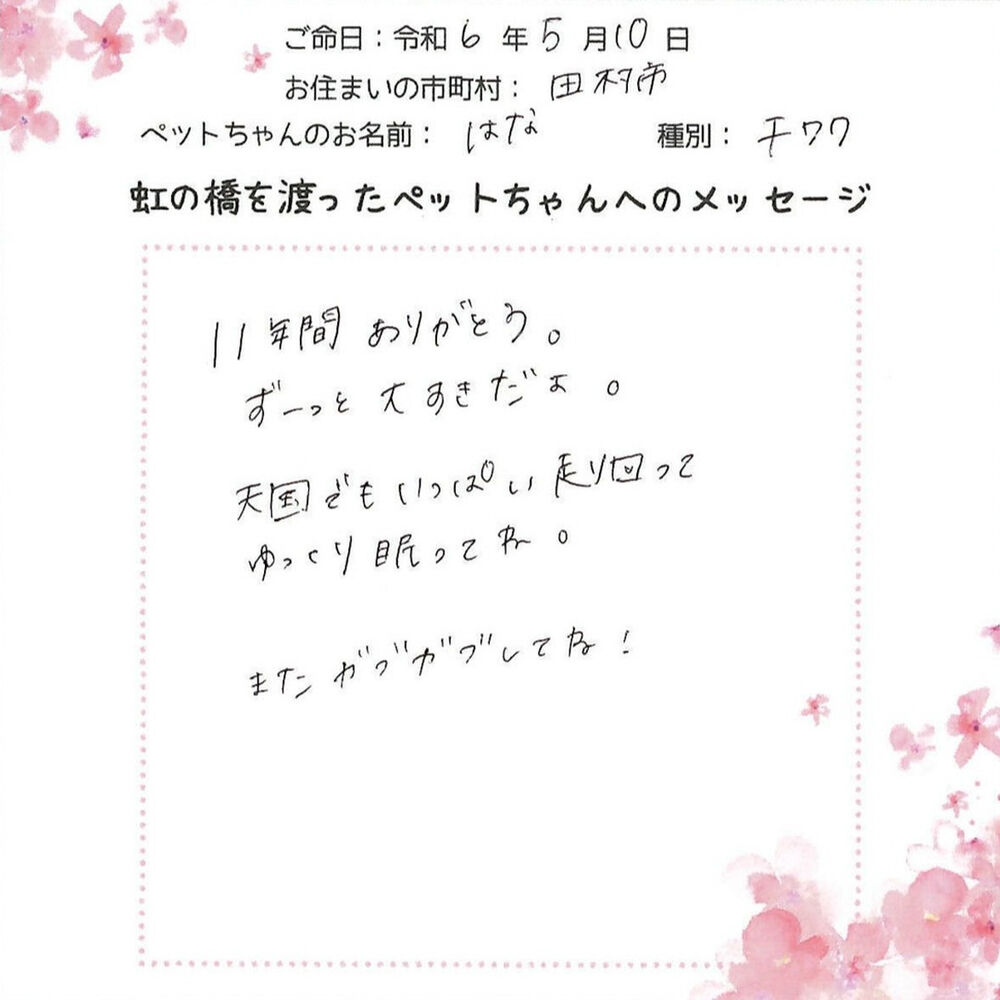 ご命日：令和6年5月10日
お住まいの市町村： 田村市
ペットちゃんのお名前： はな 種別： チワワ
虹の橋を渡ったペットちゃんへのメッセージ
11年間 ありがとう。
ずーっと 大すきだよ。
天国でも いっぱい 走り回って
ゆっくり 眠ってね。
また ガブガブしてね！